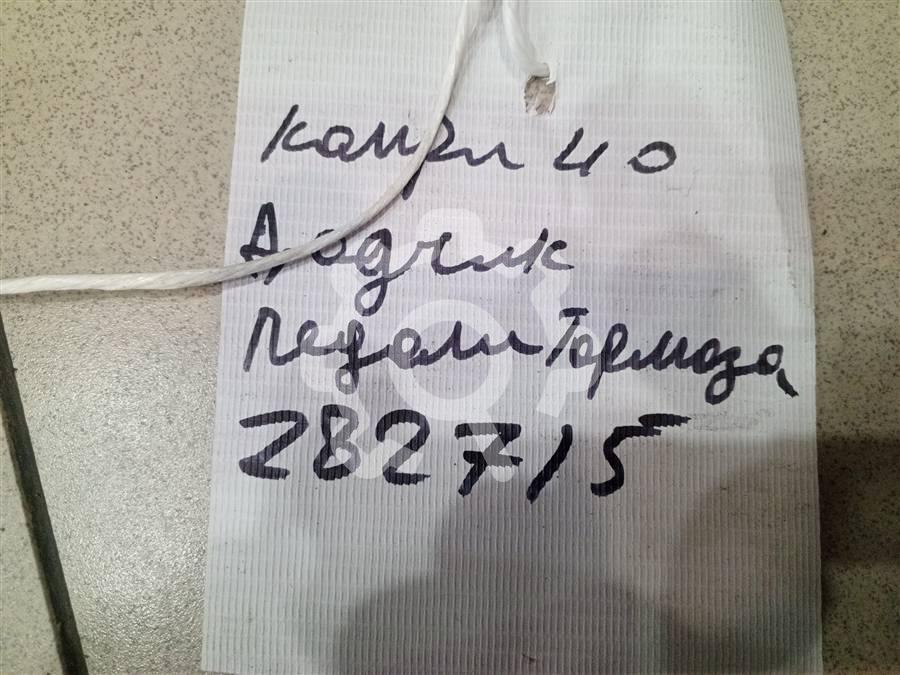 Камри 40
Дадчик
Педали Тормоза
282715